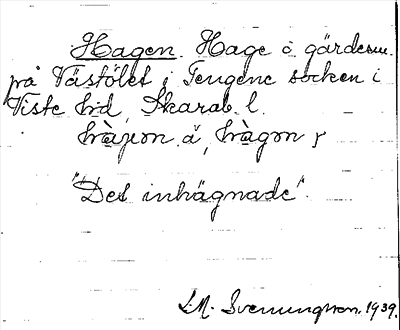 Hagen. Hage o gärdesn.
på Västölet i Tengene socken i
Viste hrd, Skarab. l.
hàgon
"Det inhägnade".
S.M. Svenungsson. 1939.